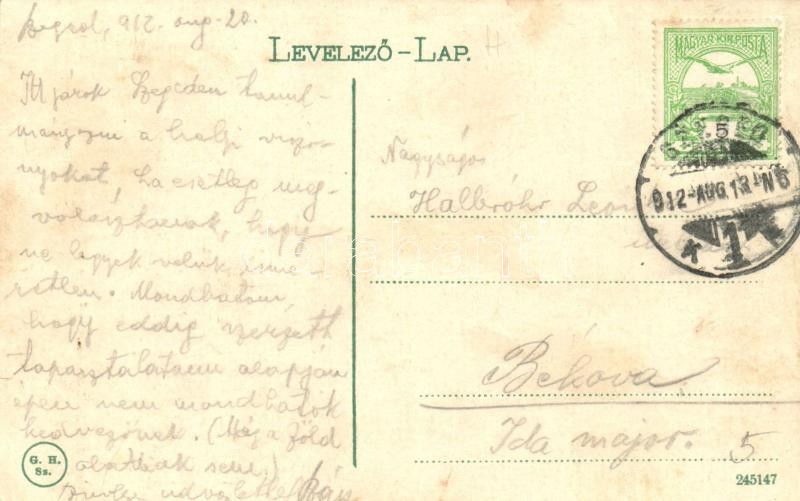 Szeged, 912. aug. 20.
LEVELEZŐ-LAP.
Itt járok Szegeden tanul-
mányozni a helyi viszo-
nyokat, ha esetleg meg-
választanak, hogy
ne legyek velük isme-
retlen. Mondhatom
hogy eddig szerzett
tapasztalataim alapján
épen nem mondhatók
kedvezőnek. (Még a zöld
sem)
üdvözlettel
MAGYAR KIR. POSTA
5
SZEGED
912-AUG.13.
1
Nagyságos
Halbrohr
Békova
Ida major. 5
G. H.
Sz.
245147